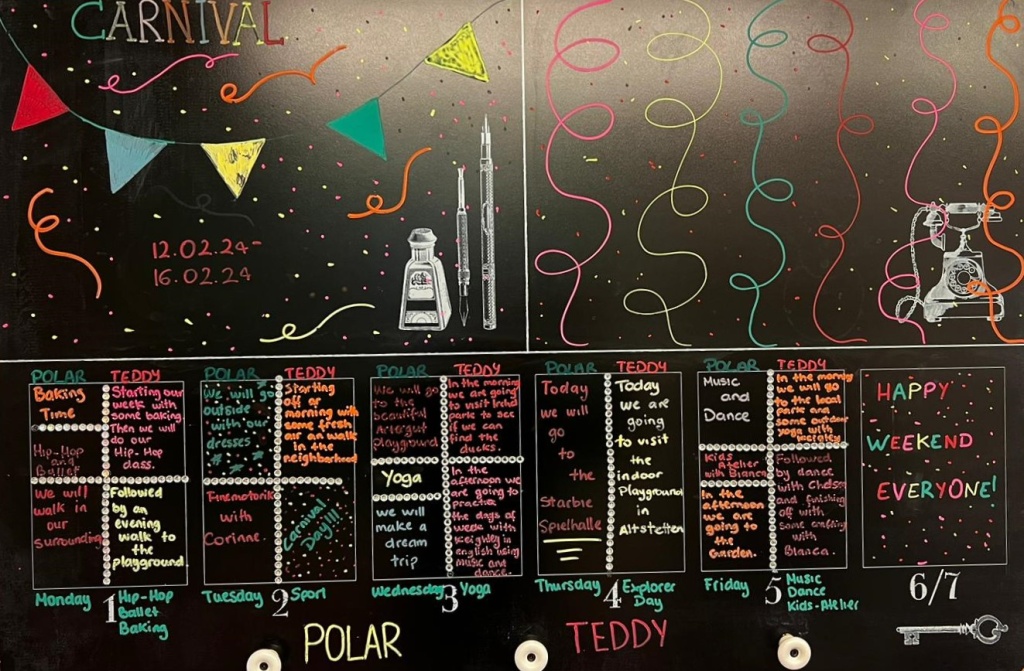 CARNIVAL
12.02.24-
16.02.24
POLAR
Baking
Time
Hip-Hop
and
Ballet
We will
walk in
our
surrounding
TEDDY
Starting our
week with
some baking.
Then we will
do our
Hip-Hop
class.
Followed
by an
evening
walk to
the
playground.
Monday
1
Hip-Hop
Ballet
Baking
POLAR
We will go
outside
with our
dresses
Finemotorik
with
Corinne.
TEDDY
Starting
off or
morning with
some fresh
air an walk
in the
neighborhood
Carnival
Day!!!
Tuesday
2
Sport
POLAR
We will go
to the
beautiful
Artergut
playground
Yoga
we will
make a
dream
trip
TEDDY
In the morning
we are going
to visit Irchel
park to see
if we can
find the
ducks.
In the
afternoon we
are going to
practice
the days of
week with
Keighley in
english using
music and
dance.
Wednesday
3
Yoga
POLAR
Today
we will
go
to
the
Starbie
Spielhalle
TEDDY
Today
we are
going
to visit
the
indoor
Playground
in
Altstetten
Thursday
4
Explorer
Day
POLAR
Music
and
Dance
Kids-
Atelier
with Bianca
In the
afternoon
we are
going to
the
Garden.
TEDDY
In the morning
we will go
to the local
park and
some outdoor
yoga with
Keighley
Followed
by dance
with Chelsea
and finishing
off with
some crafting
with
Bianca.
Friday
5
Music
Dance
Kids-Atelier
HAPPY
WEEKEND
EVERYONE!
6/7
POLAR
TEDDY